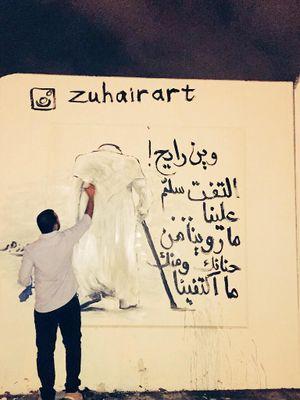 zuhairart
وين رايح!
التفت سلم
علينا
ما روينا من
حنانك ومنك
ما اكتفينا